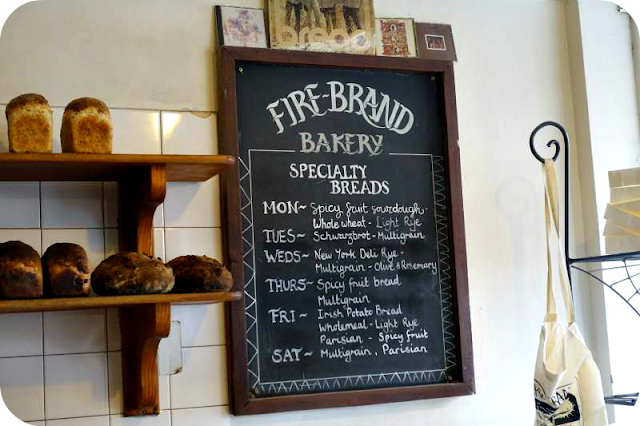 bread
FIRE-BRAND
BAKERY
SPECIALTY
BREADS
MON~ Spicy fruit sourdough.
Whole wheat - Light Rye
TUES~ Schwarzbrot - Multigrain
WEDS~ New York Deli Rye -
Multigrain - Olive & Rosemary
THURS~ Spicy fruit bread
Multigrain
FRI~ Irish Potato Bread
Wholemeal - Light Rye
Parisian - Spicy Fruit
SAT~ Multigrain, Parisian